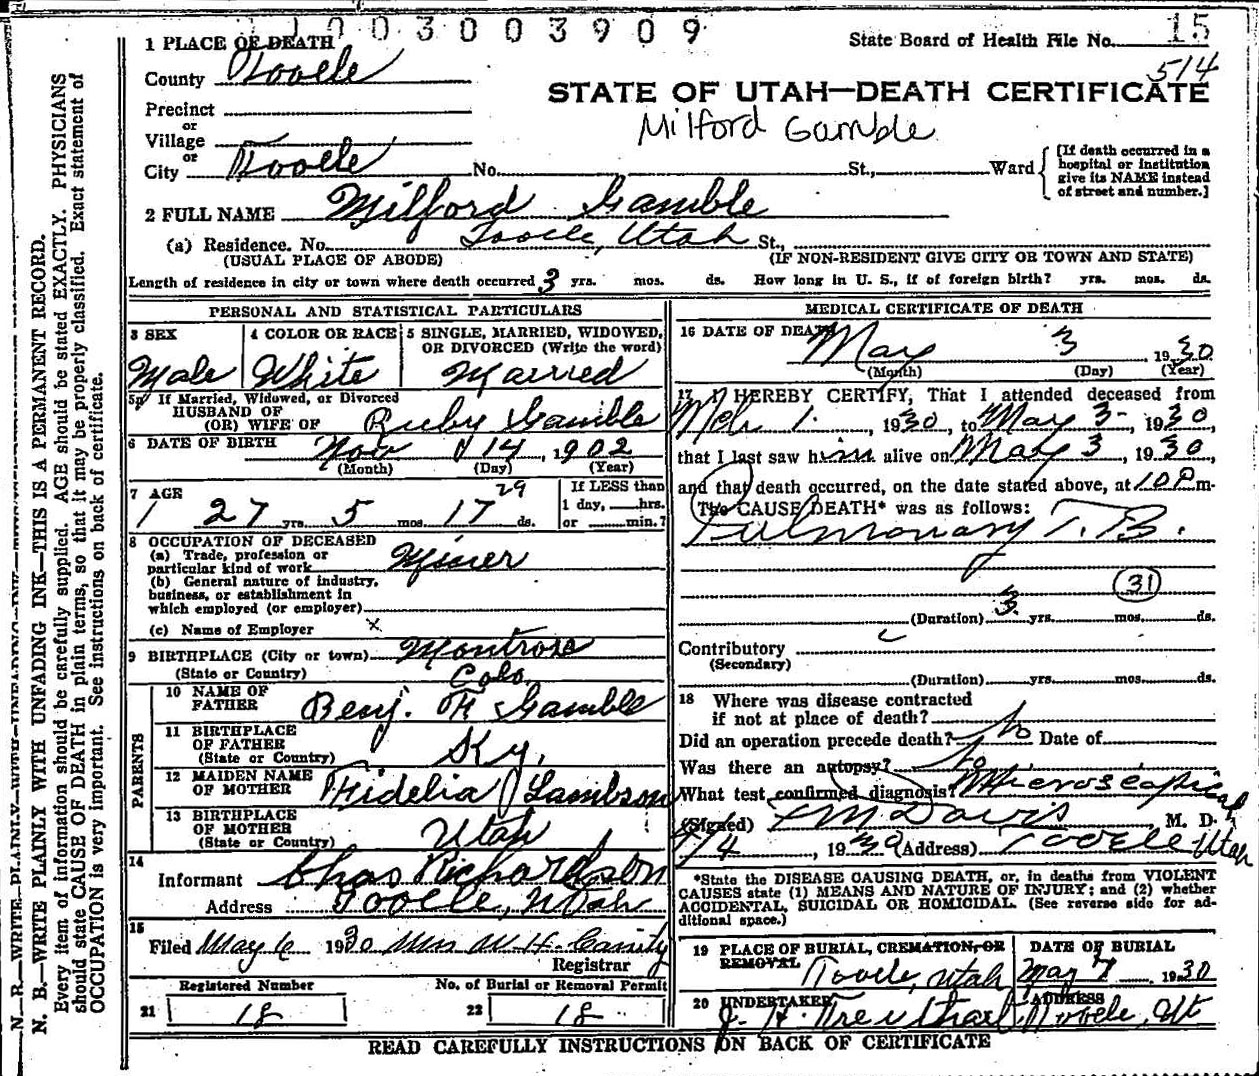 1003003909
State Board of Health File No. 15
514
1 PLACE OF DEATH
County Tooele
STATE OF UTAH—DEATH CERTIFICATE
Milford Gamble
Precinct
or
Village
or
City Tooele No. St., Ward
[If death occurred in a hospital or institution give its NAME instead of street and number.]
2 FULL NAME Milford Gamble
(a) Residence. No. Tooele, Utah St.,
(USUAL PLACE OF ABODE) (IF NON-RESIDENT GIVE CITY OR TOWN AND STATE)
Length of residence in city or town where death occurred 3 yrs. mos. ds. How long in U. S., if of foreign birth? yrs. mos. ds.
PERSONAL AND STATISTICAL PARTICULARS
3 SEX Male
4 COLOR OR RACE White
5 SINGLE, MARRIED, WIDOWED, OR DIVORCED (Write the word) Married
5a If Married, Widowed, or Divorced
HUSBAND OF
(OR) WIFE OF Ruby Gamble
6 DATE OF BIRTH Nov 14, 1902
(Month) (Day) (Year)
7 AGE
27 yrs. 5 mos. 17 29 ds.
If LESS than
1 day, hrs.
or min.?
8 OCCUPATION OF DECEASED
(a) Trade, profession or
particular kind of work Miner
(b) General nature of industry,
business, or establishment in
which employed (or employer)
(c) Name of Employer x
9 BIRTHPLACE (City or town) Montrose
(State or Country) Colo.
PARENTS
10 NAME OF
FATHER Benj. F. Gamble
11 BIRTHPLACE
OF FATHER
(State or Country) Ky.
12 MAIDEN NAME
OF MOTHER Fidelia Lambson
13 BIRTHPLACE
OF MOTHER
(State or Country) Utah
14
Informant Chas Richardson
Address Tooele, Utah
15
Filed May 6 1930 Mrs W. H. Cassity
Registrar
Registered Number No. of Burial or Removal Permit
21 18 22 18
MEDICAL CERTIFICATE OF DEATH
16 DATE OF DEATH
May 3, 1930
(Month) (Day) (Year)
17 I HEREBY CERTIFY, That I attended deceased from
Mch 1. 1930, to May 3- 1930,
that I last saw him alive on May 3, 1930,
and that death occurred, on the date stated above, at 10 P m.
The CAUSE DEATH* was as follows:
Pulmonary T.B.
31
(Duration) 3 yrs. mos. ds.
Contributory
(Secondary)
(Duration) yrs. mos. ds.
18 Where was disease contracted
if not at place of death?
Did an operation precede death? No Date of
Was there an autopsy? No
What test confirmed diagnosis? Microscopical
(Signed) F M Davis M. D.
5/4, 1930 (Address) Tooele Utah
*State the DISEASE CAUSING DEATH, or, in deaths from VIOLENT
CAUSES state (1) MEANS AND NATURE OF INJURY; and (2) whether
ACCIDENTAL, SUICIDAL OR HOMICIDAL. (See reverse side for ad-
ditional space.)
19 PLACE OF BURIAL, CREMATION, OR REMOVAL Tooele, Utah
DATE OF BURIAL May 7 1930
20 UNDERTAKER
ADDRESS Tooele, Ut
READ CAREFULLY INSTRUCTIONS ON BACK OF CERTIFICATE
N. B.—WRITE PLAINLY WITH UNFADING INK—THIS IS A PERMANENT RECORD.
Every item of information should be carefully supplied. AGE should be stated EXACTLY. PHYSICIANS
should state CAUSE OF DEATH in plain terms, so that it may be properly classified. Exact statement of
OCCUPATION is very important. See instructions on back of certificate.